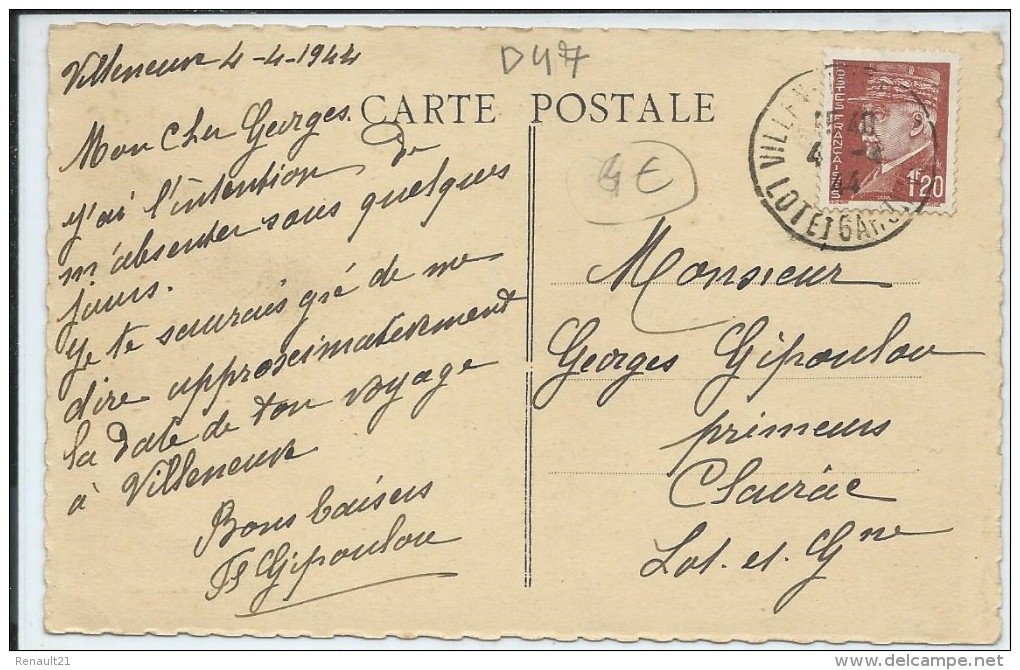 Villeneuve 4-4-1944
D47
CARTE POSTALE
4 €
Mon cher Georges.
J'ai l'intention de
m'absenter sous quelques
jours.
Je te saurais gré de me
dire approximativement
la date de ton voyage
à Villeneuve
Bons baisers
Gipoulou
POSTES FRANÇAISES
1F20
VILLEN
4 -4
44
LOT ET GAR
Monsieur
Georges Gipoulou
primeurs
Clairac
Lot. et. Gne
Renault21
delcampe.net